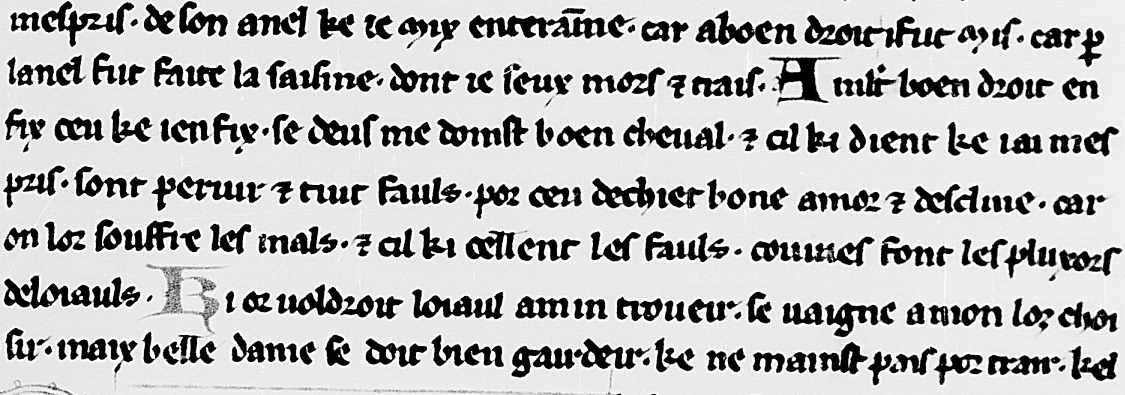 mespris· de son anel ke ie mix enterāme· car aboen droit i fut mis· car ꝑ
lanel fut faite la saisine· dont ie seux mors ⁊ trais· A mlt boen droit en
fix ceu ke ien fix· se deus me donst boen cheual· ⁊ cil ki dient ke iai mes
pris· sont periur ⁊ tuit fauls· por ceu dechiet bone amor ⁊ descline· car
on lor souffre les mals· ⁊ cil ki cellent les fauls· couuines font les pluxors
deloiauls· Ki or uoldroit loiaul amin troueir· se uaigne a mon lor choi
sir· maix belle dame se doit bien gairdeir· ke ne mainst pais por trair· kel